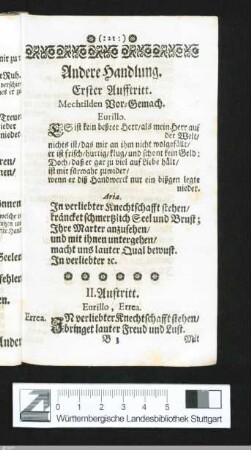 ( 121 )
Andere Handlung.
Erster Aufftritt.
Mechtilden Vor-Gemach.
Eurillo.
ES ist kein beßrer Herr / als mein Herr auf
der Welt /
nichts ist / das mir an ihm nicht wolgefällt /
er ist frisch / hurtig / klug / und schont kein Geld;
Doch / daß er gar zu viel auf Liebe hält /
ist mir schwahr zuwider /
wenn er diß Handwerck nur ein bißgen legte
nieder.
Aria.
In verliebter Knechtschafft stehen /
kräncket schmertzlich Seel und Brust;
Ihre Marter anzusehen /
und mit ihnen untergehen /
macht uns lauter Qual bewust.
In verliebter ꝛc.
II. Aufftritt.
Eurillo, Errea.
Errea. IN verliebter Knechtschafft stehen /
bringet lauter Freud und Lust.
Mit
Württembergische Landesbibliothek Stuttgart